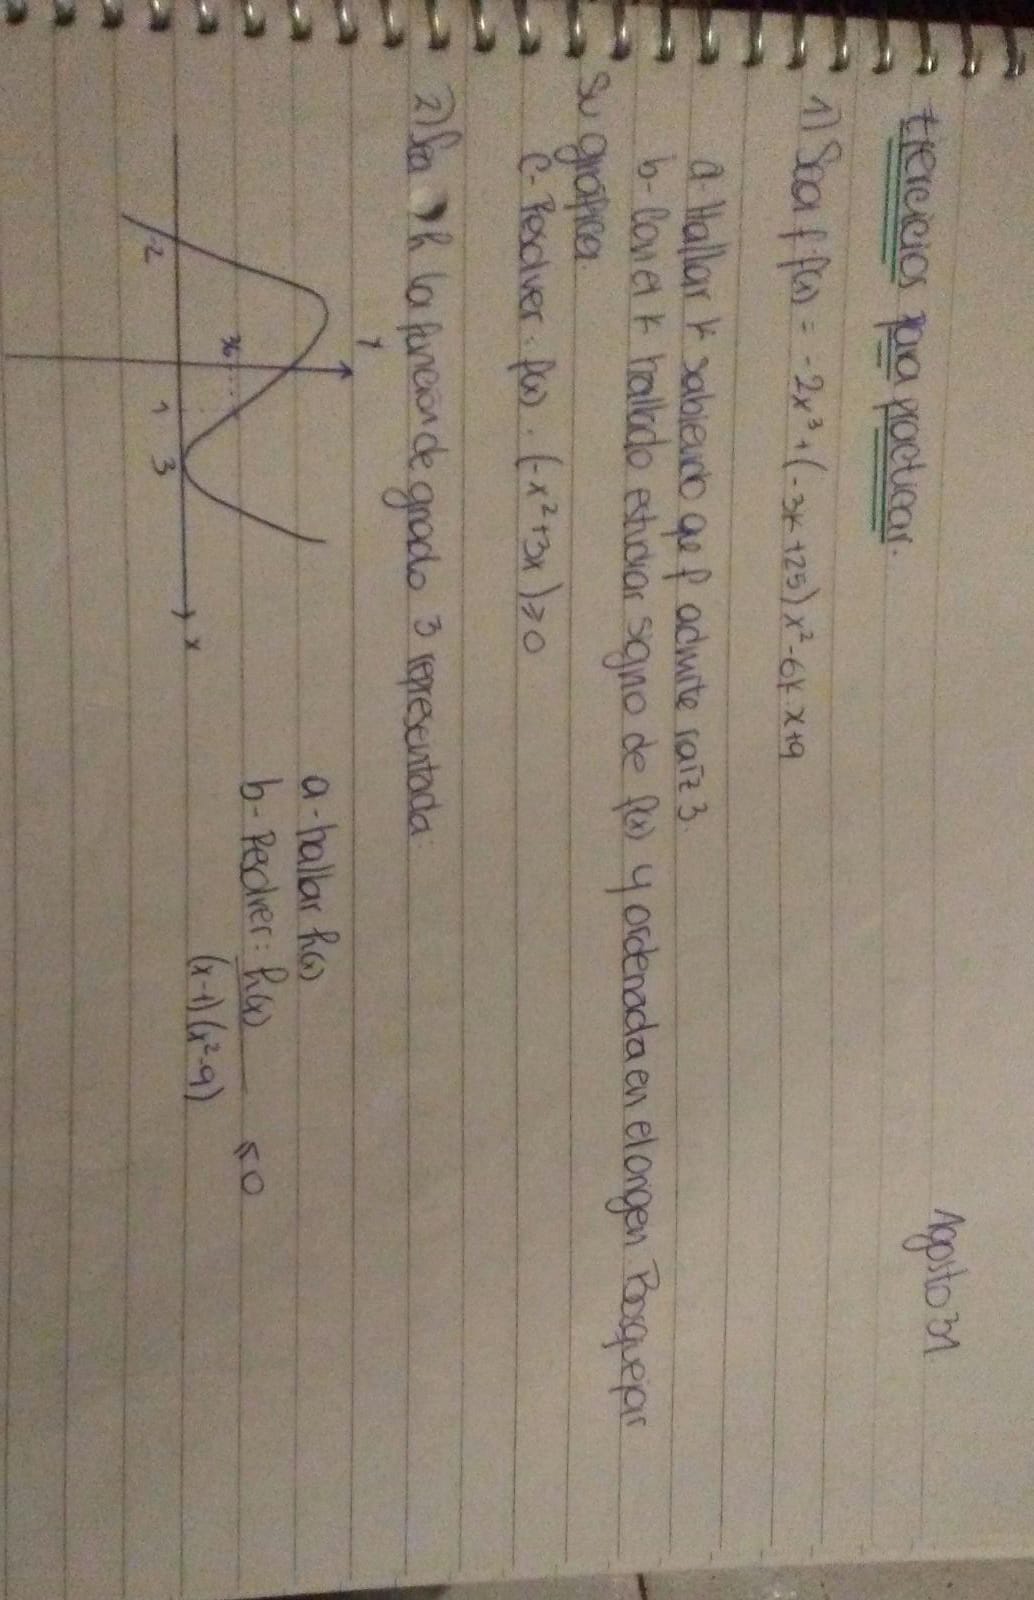 Agosto 31
Ejercicios para practicar.
1) Sea f f(x) = -2x³+(-3k+25)x²-6k.x+9
a- Hallar k sabiendo que f admite raíz 3.
b- Con el k hallado estudiar signo de f(x) y ordenada en el origen Bosquejar
su gráfica.
c- Resolver: f(x) . (-x²+3x) ≥ 0
2) Sea h la función de grado 3 representada:
y
36
x
-2
1
3
a- hallar h(x)
b- Resolver: h(x) ≤ 0
(x-1)(x²-9)